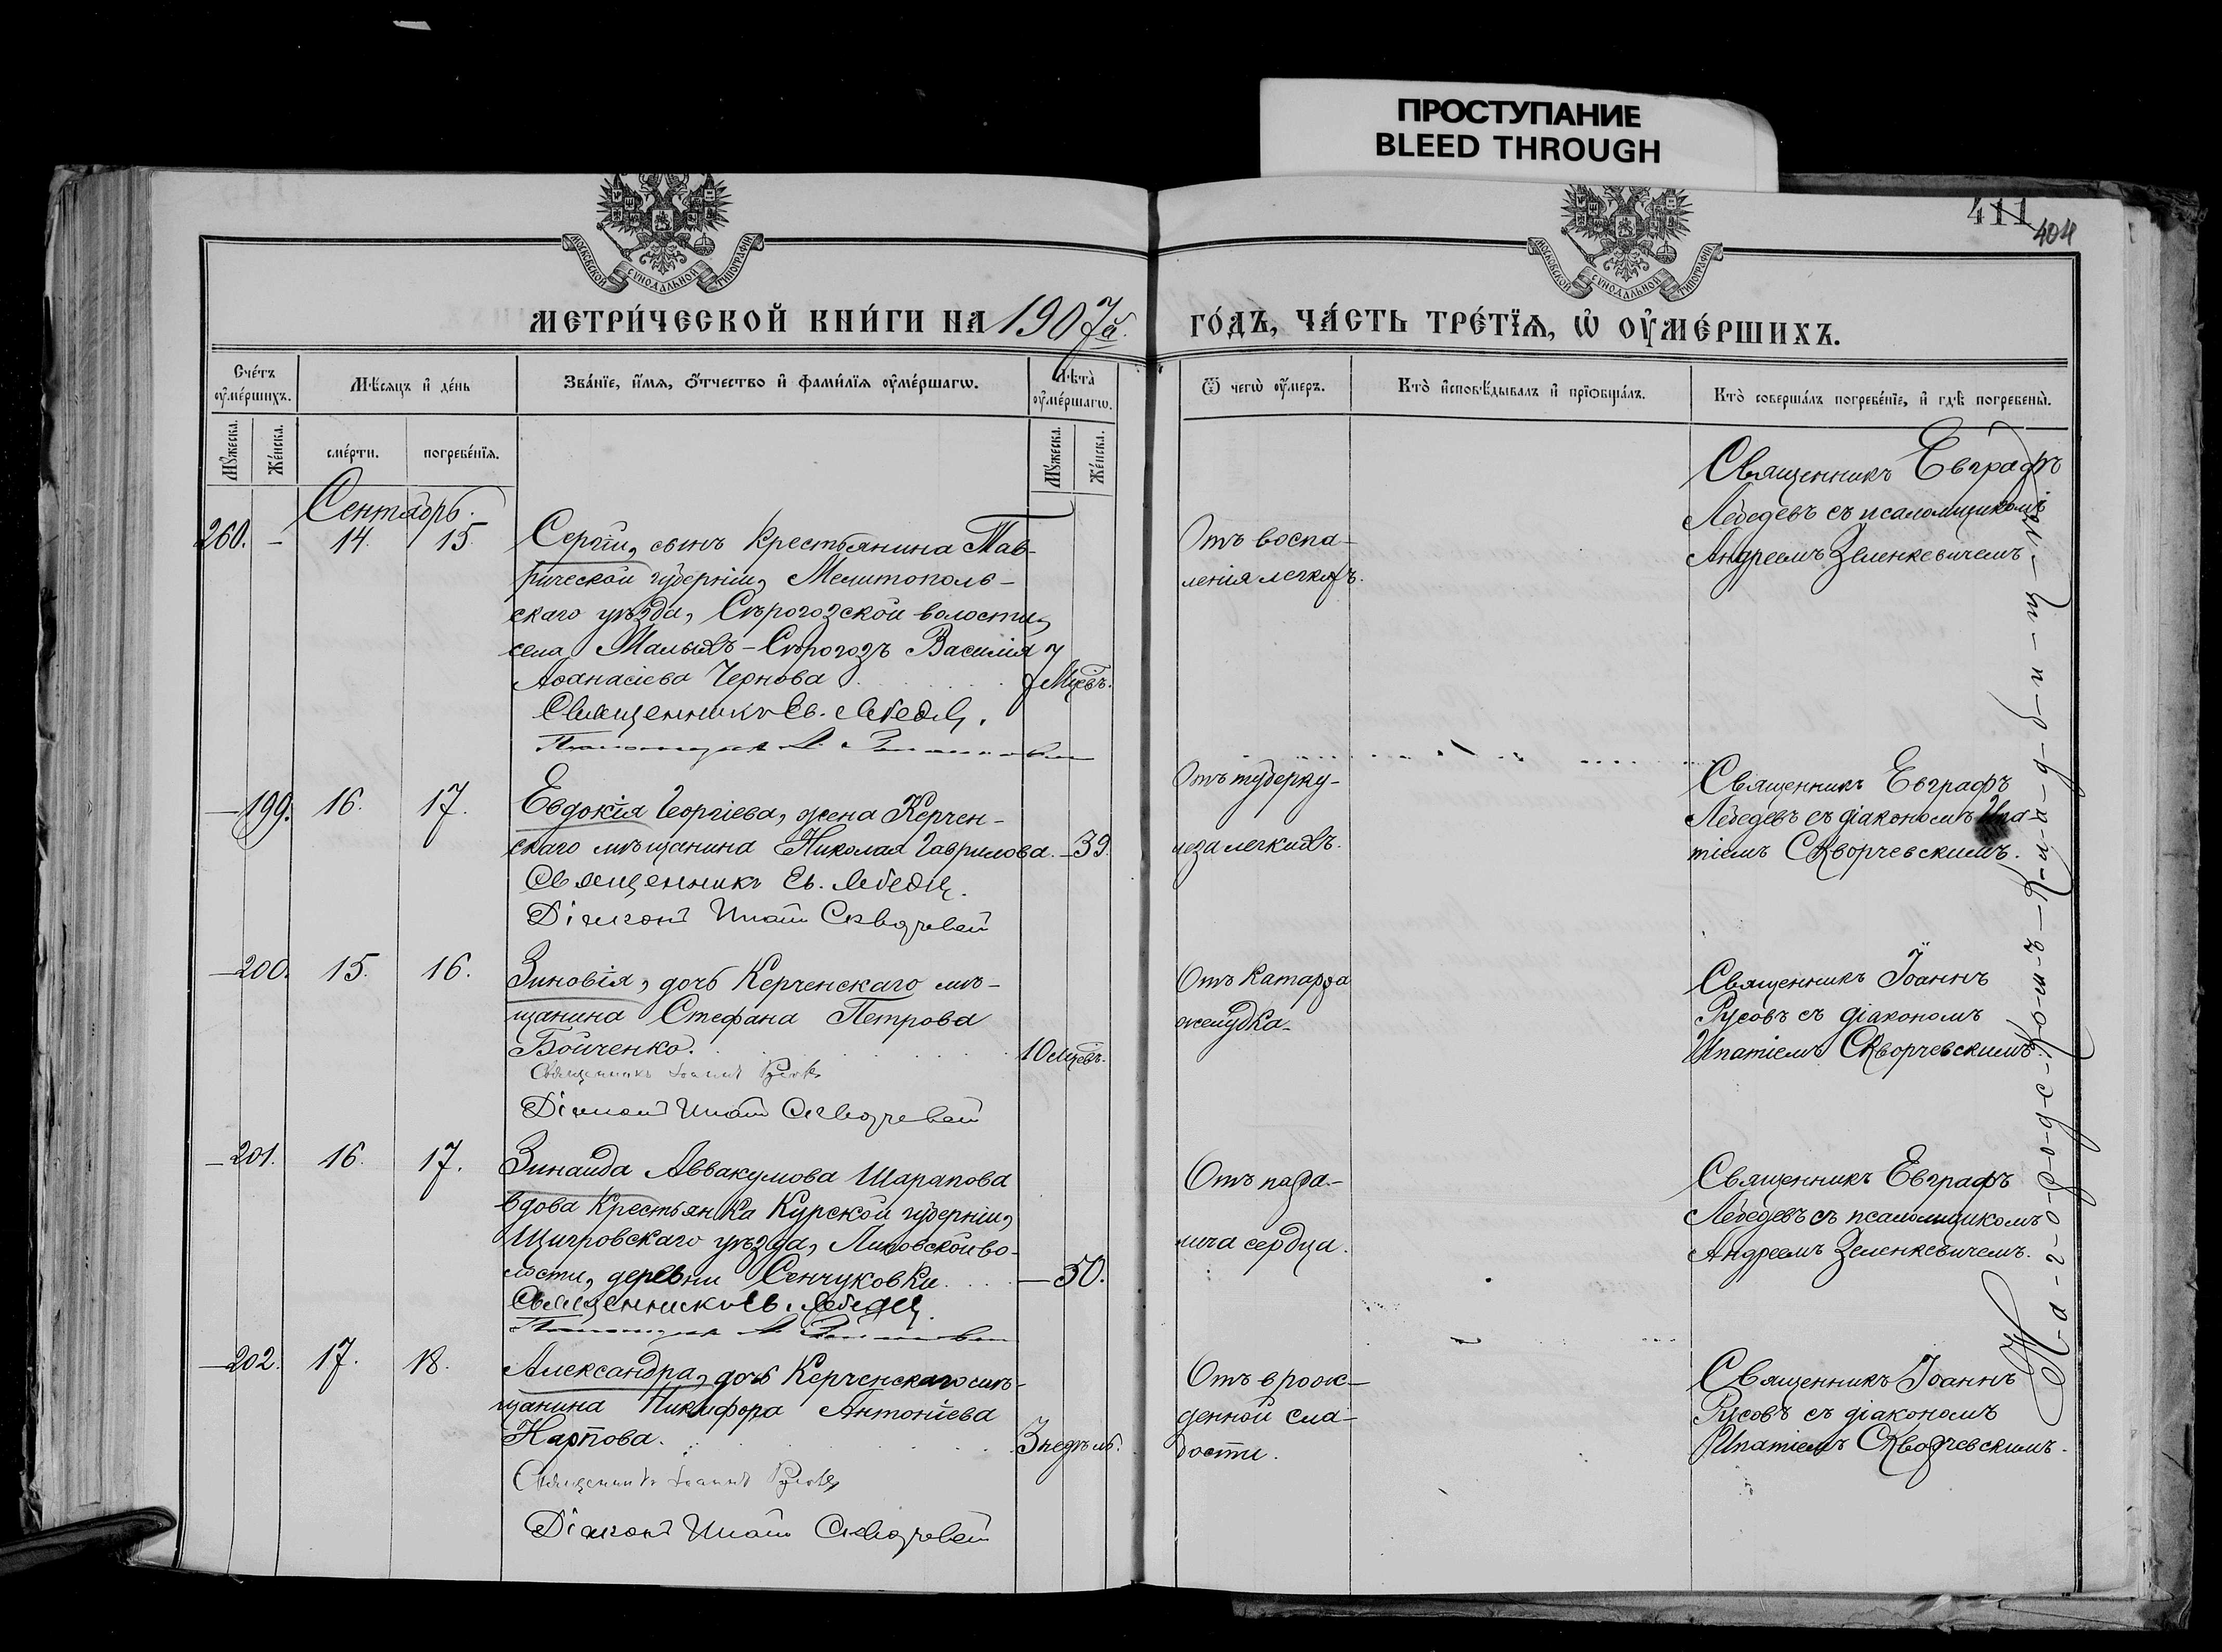 ПРОСТУПАНИЕ
BLEED THROUGH
411 404
МОСКОВСКОЙ СУНОДАЛЬНОЙ ТИПОГРАФИИ
МОСКОВСКОЙ СУНОДАЛЬНОЙ ТИПОГРАФИИ
МЕТРИ́ЧЕСКОЙ КНИ́ГИ НА 1907й
ГО́ДЪ, ЧА́СТЬ ТРЕ́ТЇѦ, Ѡ҆ ОУ҆МЕ́РШИХЪ.
Сче́тъ оу҆ме́ршихъ.
Мѣ́сѧцъ и҆ де́нь
Зва́нїе, и҆́мѧ, ѻ҆́тчество и҆ фами́лїѧ оу҆ме́ршагѡ.
Лѣ́та оу҆ме́ршагѡ.
Ѿ чегѡ̀ оу҆́меръ.
Кто̀ и҆сповѣ́дывалъ и҆ прїѡбща́лъ.
Кто̀ соверша́лъ погребе́нїе, и҆ гдѣ̀ погребены̀.
Мꙋ́жеска. Же́нска. сме́рти. погребе́нїѧ. Мꙋ́жеска. Же́нска.
Сентябрь.
260. – 14. 15.
Сергій, сынъ Крестьянина Тав-
рической губерніи, Мелитополь-
скаго уѣзда, Сѣрогозской волости,
села Малыхъ-Сѣрогозъ Василія
Аѳанасіева Чернова
7 Мцевъ.
Священникъ Ев. Лебедев.
Отъ воспа-
ленія легкихъ.
Священникъ Евграфъ
Лебедевъ съ псаломщикомъ
Андреемъ Зеленкевичемъ
– 199. 16. 17.
Евдокія Георгіева, жена Керчен-
скаго мѣщанина Николая Гаврилова. – 39.
Священникъ Ев. Лебедев.
Діаконъ Ипатій Скворчевскій
Отъ туберку-
леза легкихъ.
Священникъ Евграфъ
Лебедевъ съ діакономъ Ипа-
тіемъ Скворчевскимъ.
– 200. 15. 16.
Зиновія, дочь Керченскаго мѣ-
щанина Стефана Петрова
Бойченко. 10 мцевъ.
Священникъ Іоаннъ Русовъ
Діаконъ Ипатій Скворчевскій
Отъ катарра
желудка.
Священникъ Іоаннъ
Русовъ съ діакономъ
Ипатіемъ Скворчевскимъ.
– 201. 16. 17.
Зинаида Аввакумова Шарапова
вдова Крестьянка Курской губерніи,
Щигровскаго уѣзда, Липовской во-
лости, деревни Сенчуковки – 50.
Священникъ Ев. Лебедев.
Отъ пара-
лича сердца.
Священникъ Евграфъ
Лебедевъ съ псаломщикомъ
Андреемъ Зеленкевичемъ.
– 202. 17. 18.
Александра, дочь Керченскаго мѣ-
щанина Никифора Антоніева
Карпова. 3 недѣль.
Священникъ Іоаннъ Русовъ
Діаконъ Ипатій Скворчевскій
Отъ врож-
денной сла-
бости.
Священникъ Іоаннъ
Русовъ съ діакономъ
Ипатіемъ Скворчевскимъ.
Н-а-г-о-р-о-д-с-к-о-м-ъ-К-л-а-д-б-и-щ-ѣ